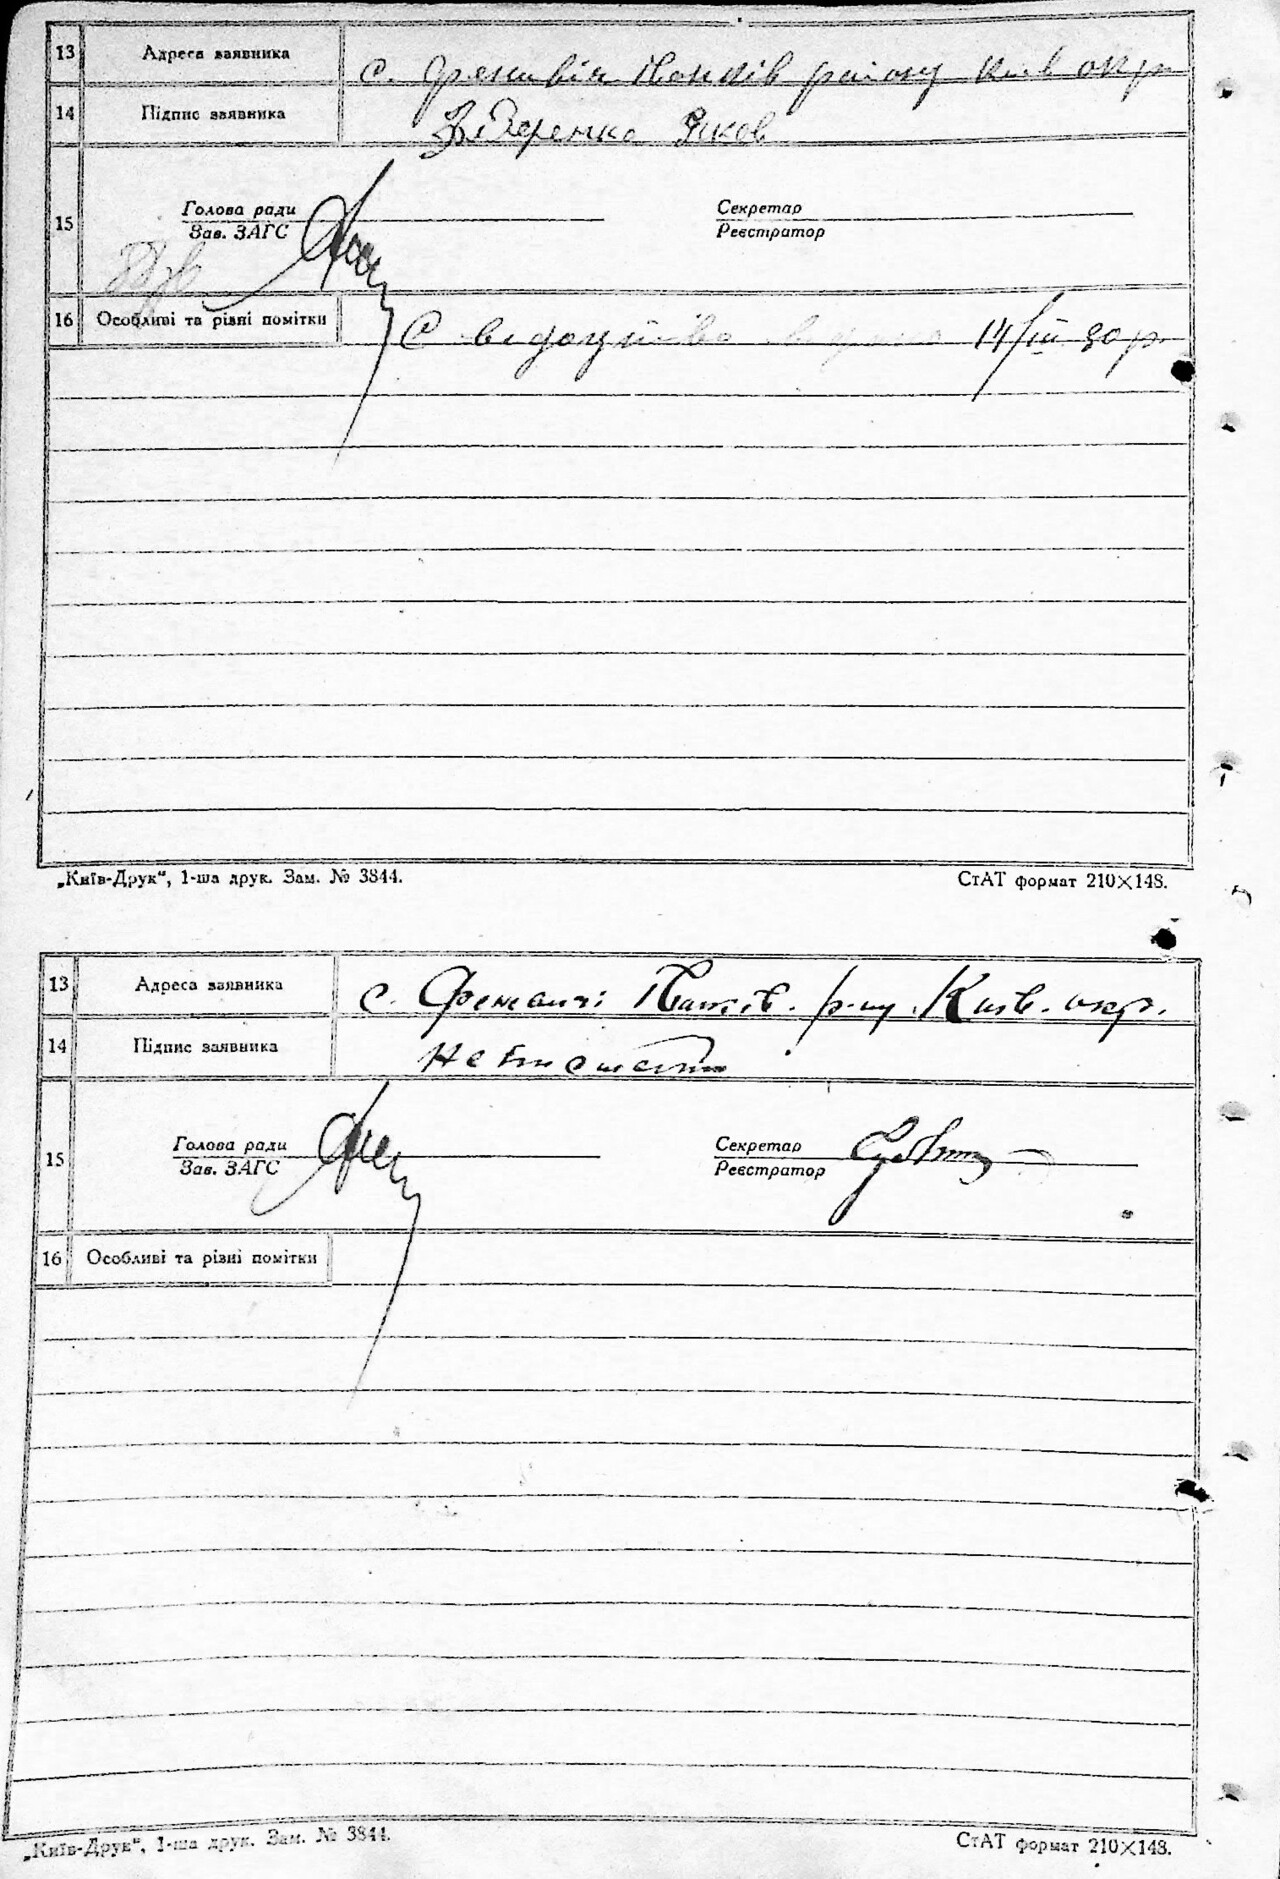 13 Адреса заявника с. району Київ окр.
14 Підпис заявника Яков
15 Голова ради Секретар
Зав. ЗАГС Реєстратор
16 Особливі та різні помітки 14/III 30 р.
„Київ-Друк“, 1-ша друк. Зам. № 3844. СтАТ формат 210×148.
13 Адреса заявника с. р-ну Київ. окр.
14 Підпис заявника
15 Голова ради Секретар
Зав. ЗАГС Реєстратор
16 Особливі та різні помітки
„Київ-Друк“, 1-ша друк. Зам. № 3844. СтАТ формат 210×148.